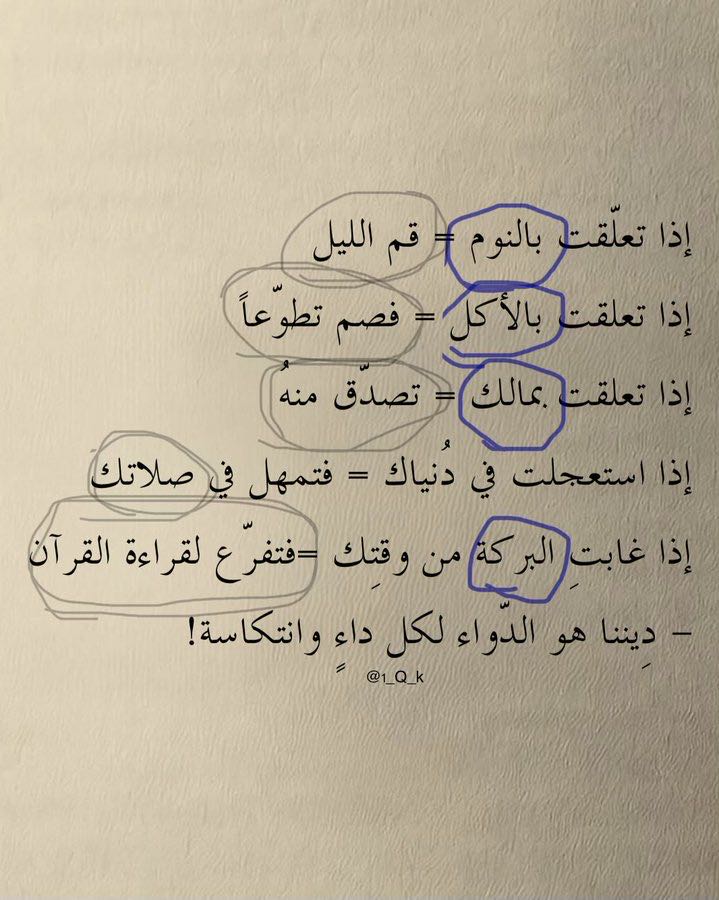 إذا تعلّقت بالنوم = قم الليل
إذا تعلقت بالأكل = فصم تطوّعاً
إذا تعلقت بمالك = تصدّق منهُ
إذا استعجلت في دُنياك = فتمهل في صلاتك
إذا غابتِ البركة من وقتِك =فتفرّع لقراءة القرآن
– دِيننا هو الدّواء لكل داءٍ وانتكاسة!
@1_Q_k